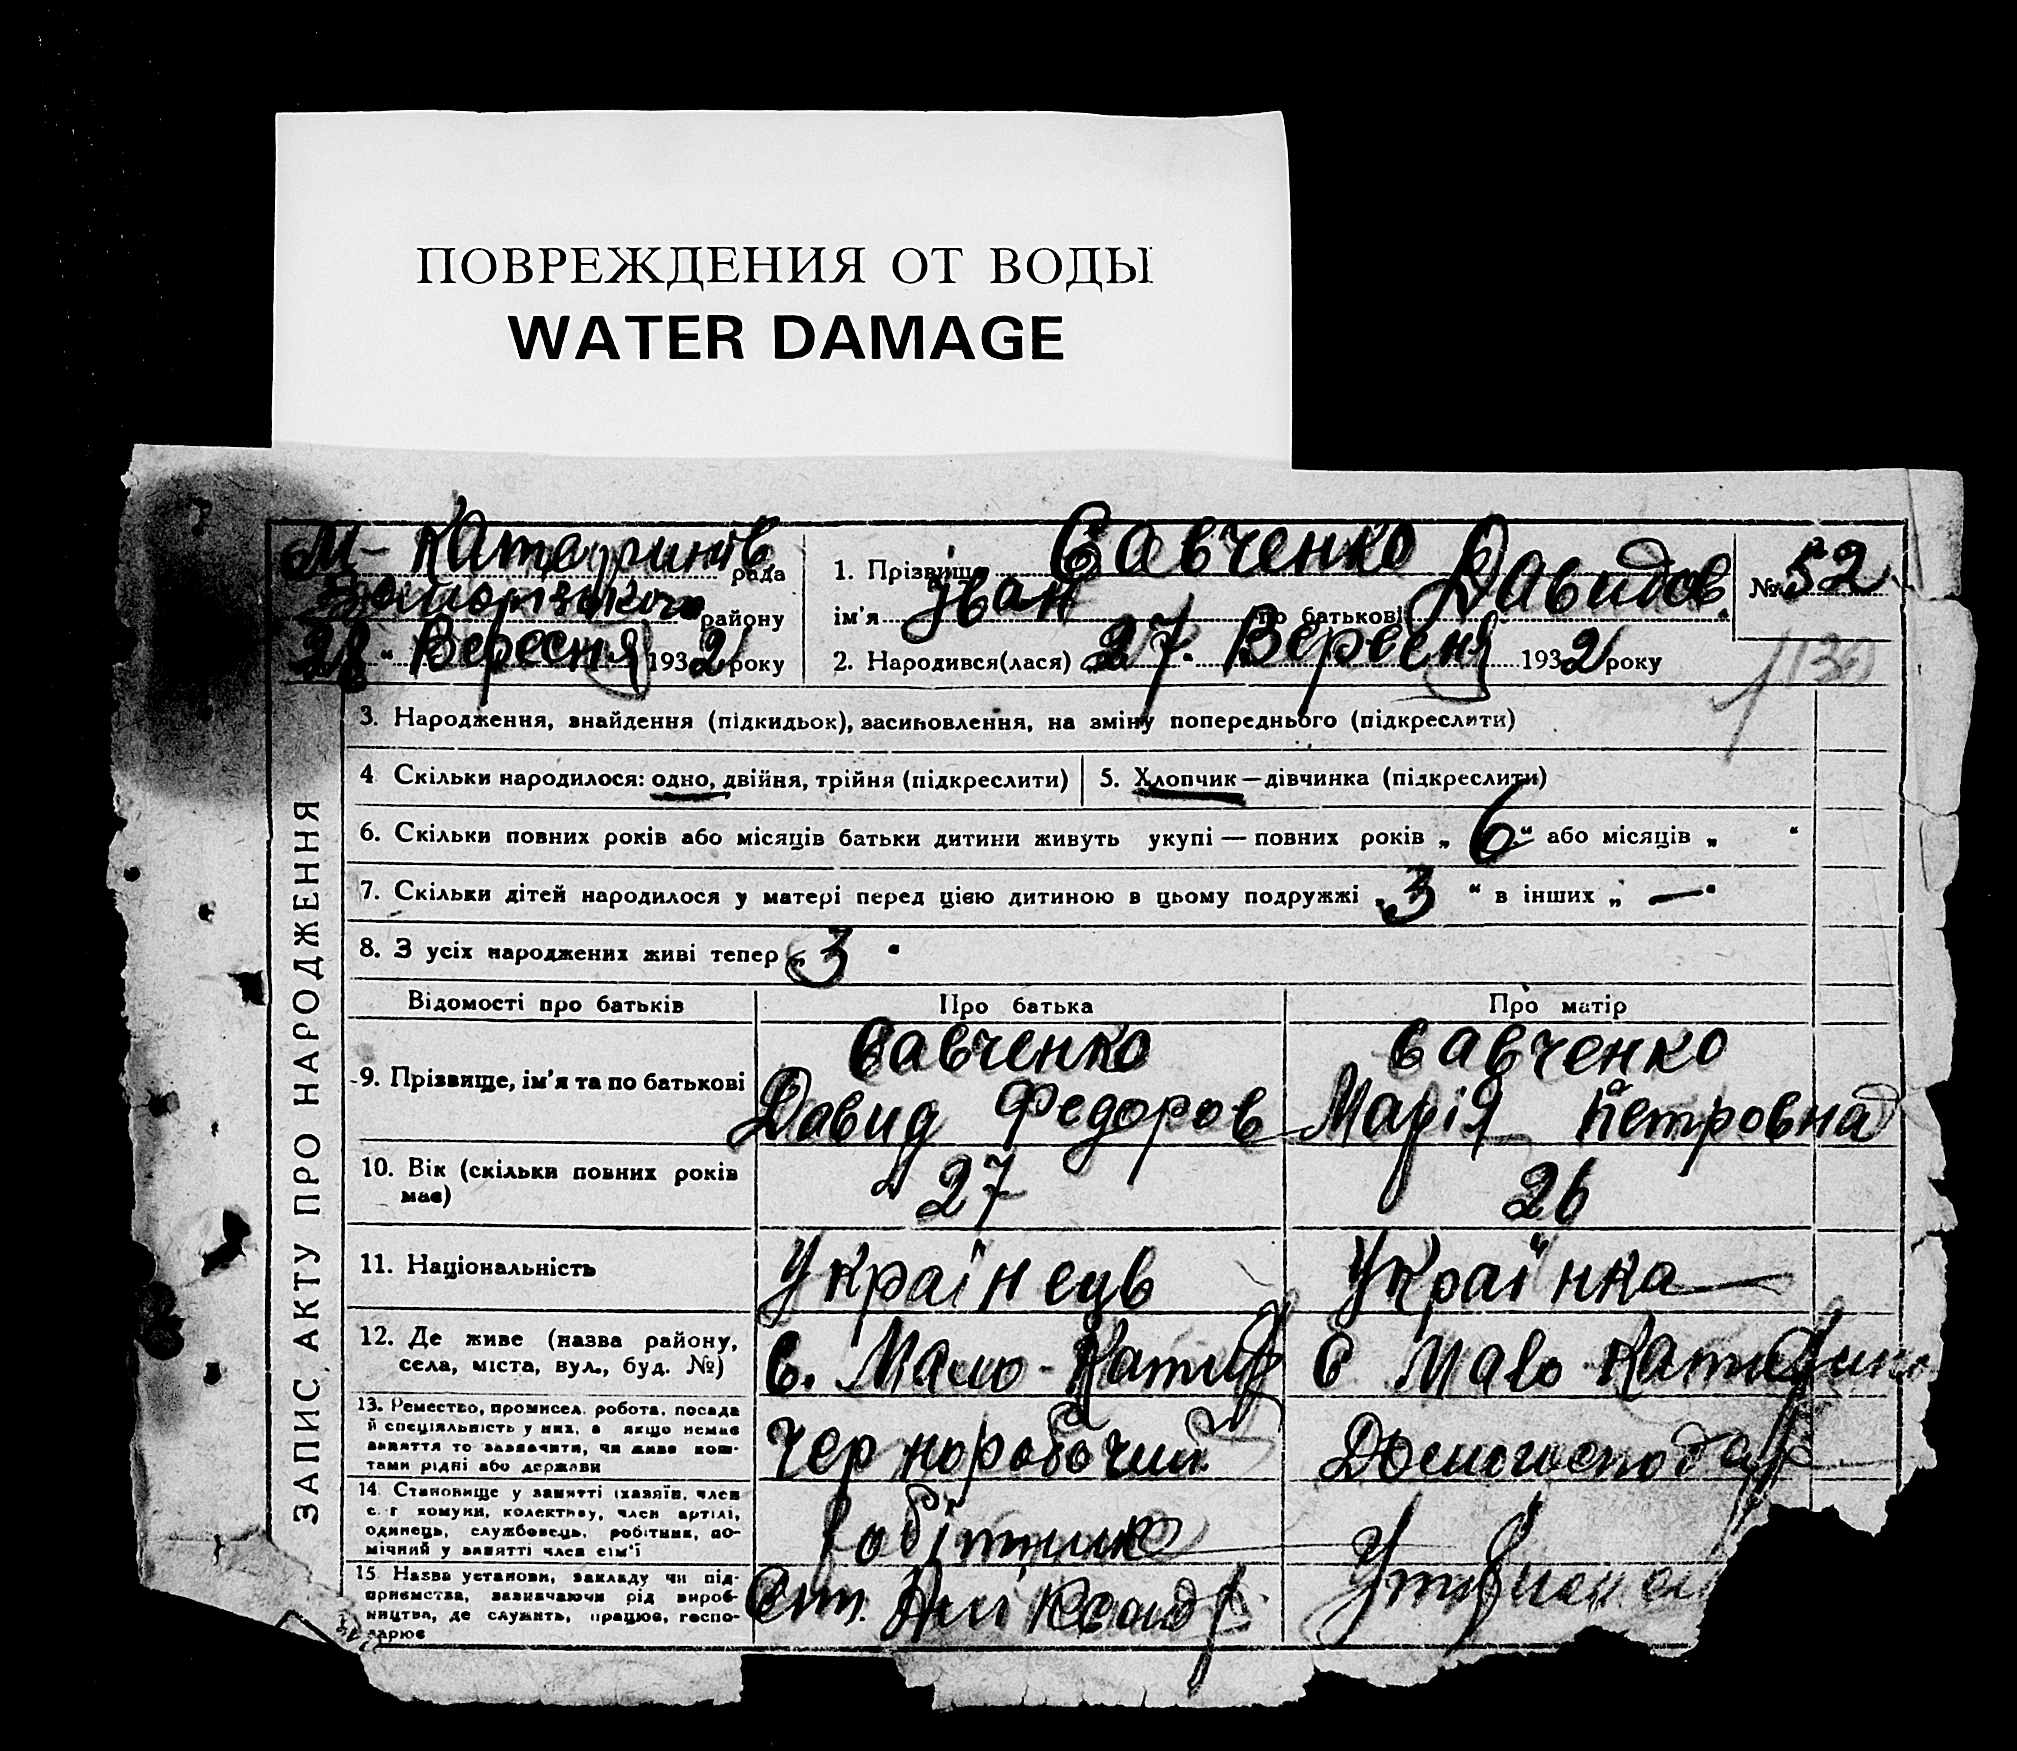 ПОВРЕЖДЕНИЯ ОТ ВОДЫ
WATER DAMAGE
М-Катеринів. рада
Запорізького району
28 " Вересня 1932 року
1. Прізвище Савченко
ім'я Іван по батькові Давидов.
№ 52
2. Народився(лася) 27 " Вересня 1932 року
ЗАПИС АКТУ ПРО НАРОДЖЕННЯ
3. Народження, знайдення (підкидьок), засиновлення, на зміну попереднього (підкреслити)
4 Скільки народилося: одно, двійня, трійня (підкреслити)
5. Хлопчик — дівчинка (підкреслити)
6. Скільки повних років або місяців батьки дитини живуть укупі — повних років „ 6 " або місяців „ "
7. Скільки дітей народилося у матері перед цією дитиною в цьому подружжі „ 3 " в інших „ — "
8. З усіх народжених живі тепер „ 3 "
Відомості про батьків Про батька Про матір
9. Прізвище, ім'я та по батькові
Савченко
Давид Федоров
Савченко
Марія Петровна
10. Вік (скільки повних років
має)
27
26
11. Національність
Українець
Українка
12. Де живе (назва району,
села, міста, вул., буд. №)
с. Мало-Катер
с Мало Катерин
13. Ремество, промисел, робота, посада
й спеціяльність у них, а якщо немає
заняття то зазначити, чи живе кош-
тами рідні або держави
Чернорабочий
Домогосподар
14. Становище у занятті (хазяїн, член
с.-г комуни, колективу, член артілі,
одинець, службовець, робітник, по-
мічний у занятті член сім'ї
Робітник
15. Назва установи, закладу чи під-
приємства, зазначаючи рід вироб-
ництва, де служить, працює, госпо-
дарює
Ст.